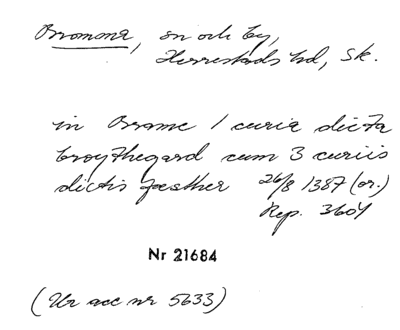 Bromma, sn och by,
Herrestads hd, Sk.
in Brame 1 curia dicta
broythegard cum 3 curiis
dictis fæsther 26/8 1387 (or.)
Rep. 3604
Nr 21684
(Ur acc nr 5633)